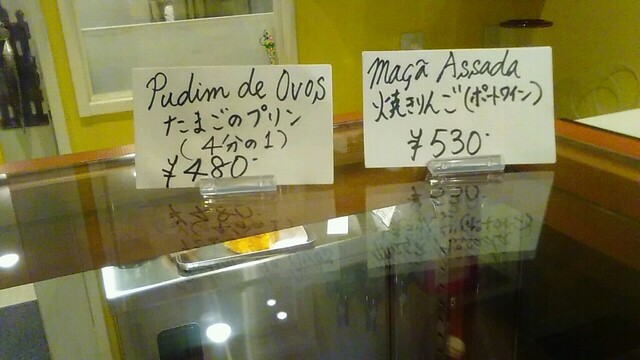 Pudim de Ovos
たまごのプリン
(4分の1)
¥480-
Maçã Assada
焼きりんご(ポートワイン)
¥530-